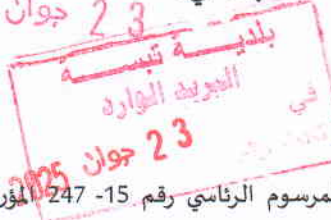 23 جوان
بلديــة تبســة
البريد الوارد
في
23 جوان 2025
مرسوم الرئاسي رقم 15- 247 المؤر